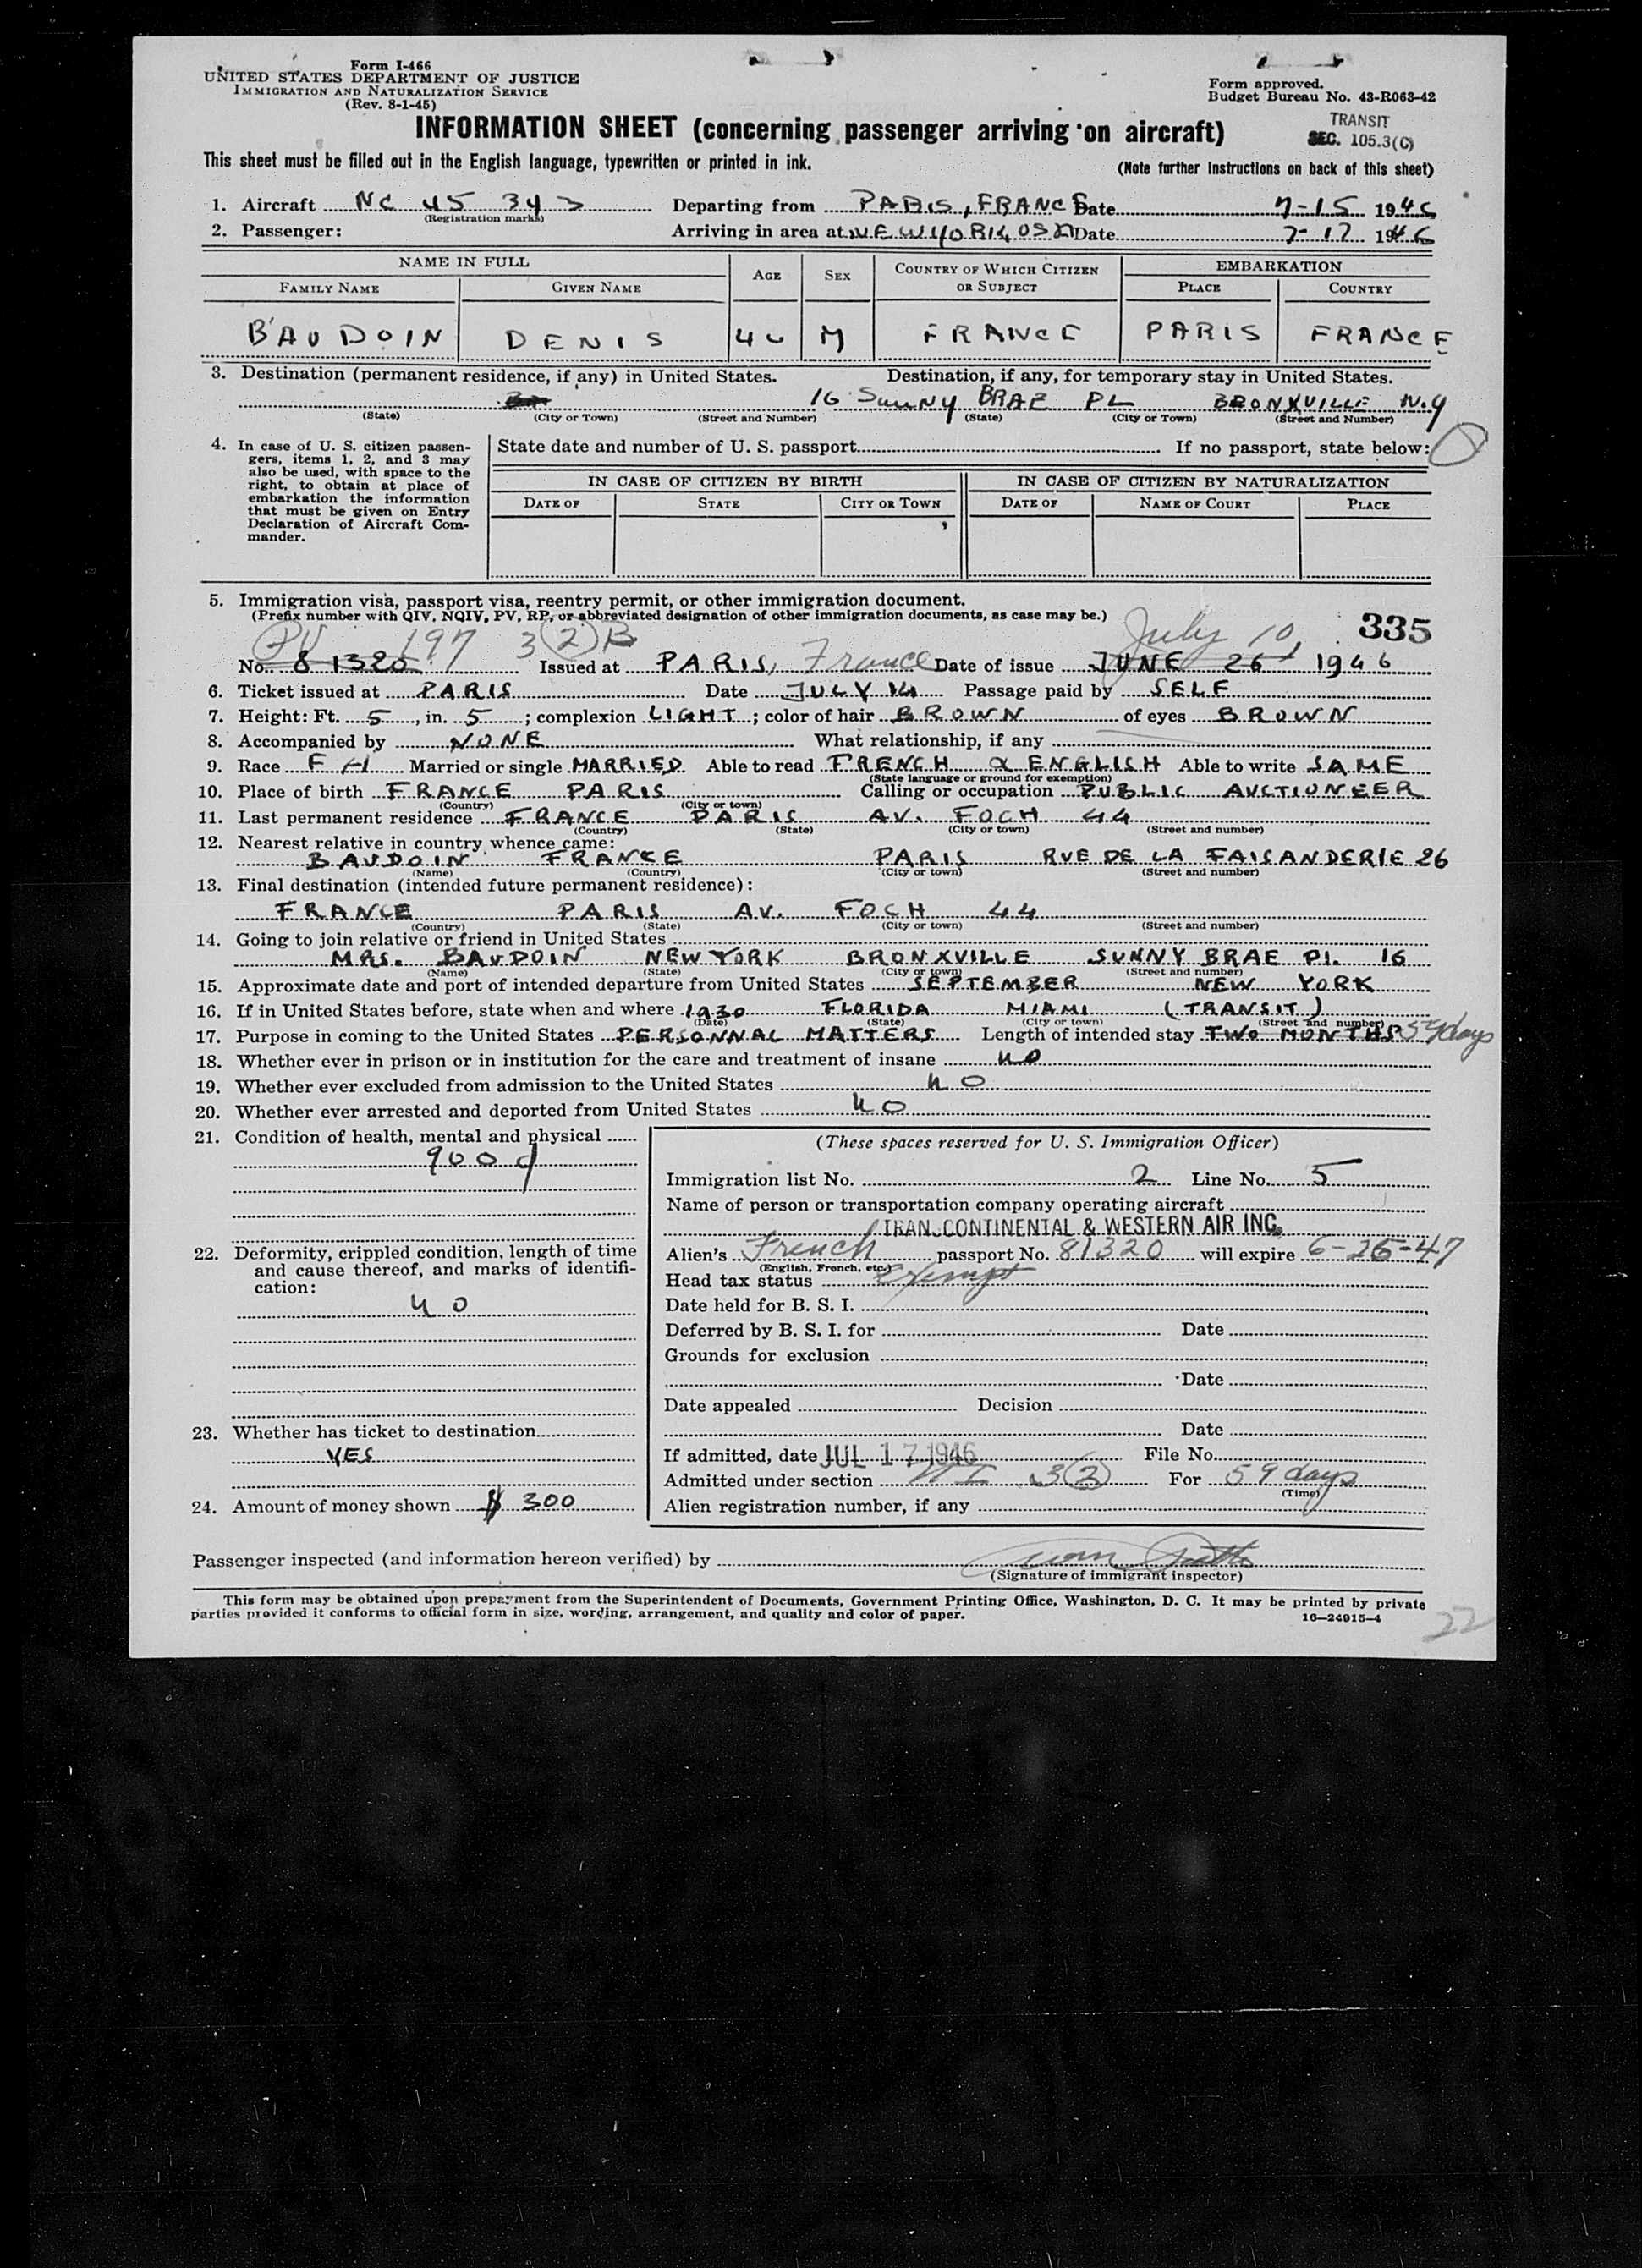 Form I-466
UNITED STATES DEPARTMENT OF JUSTICE
IMMIGRATION AND NATURALIZATION SERVICE
(Rev. 8-1-45)
Form approved.
Budget Bureau No. 43-R063-42
TRANSIT
SEC. 105.3(C)
INFORMATION SHEET (concerning passenger arriving on aircraft)
This sheet must be filled out in the English language, typewritten or printed in ink. (Note further instructions on back of this sheet)
1. Aircraft NC 45 343 Departing from PARIS, FRANCE Date 7-15 1946
(Registration marks)
2. Passenger: Arriving in area at NEW YORK USA Date 7-17 1946
NAME IN FULL AGE SEX COUNTRY OF WHICH CITIZEN OR SUBJECT EMBARKATION
FAMILY NAME GIVEN NAME PLACE COUNTRY
BAUDOIN DENIS 46 M FRANCE PARIS FRANCE
3. Destination (permanent residence, if any) in United States. Destination, if any, for temporary stay in United States.
16 Sunny BRAE PL BRONXVILLE N.Y
(State) (City or Town) (Street and Number) (State) (City or Town) (Street and Number)
4. In case of U. S. citizen passengers, items 1, 2, and 3 may also be used, with space to the right, to obtain at place of embarkation the information that must be given on Entry Declaration of Aircraft Commander.
State date and number of U. S. passport If no passport, state below:
IN CASE OF CITIZEN BY BIRTH IN CASE OF CITIZEN BY NATURALIZATION
DATE OF STATE CITY OR TOWN DATE OF NAME OF COURT PLACE
5. Immigration visa, passport visa, reentry permit, or other immigration document.
(Prefix number with QIV, NQIV, PV, RP, or abbreviated designation of other immigration documents, as case may be.)
335
PV 197 3(2)B July 10,
No. 81320 Issued at PARIS, France Date of issue JUNE 26 1946
6. Ticket issued at PARIS Date JULY 14 Passage paid by SELF
7. Height: Ft. 5, in. 5; complexion LIGHT; color of hair BROWN of eyes BROWN
8. Accompanied by NONE What relationship, if any
9. Race FH Married or single MARRIED Able to read FRENCH & ENGLISH Able to write SAME
(State language or ground for exemption)
10. Place of birth FRANCE PARIS Calling or occupation PUBLIC AUCTIONEER
(Country) (City or town)
11. Last permanent residence FRANCE PARIS AV. FOCH 44
(Country) (State) (City or town) (Street and number)
12. Nearest relative in country whence came:
BAUDOIN FRANCE PARIS RUE DE LA FAISANDERIE 26
(Name) (Country) (City or town) (Street and number)
13. Final destination (intended future permanent residence):
FRANCE PARIS AV. FOCH 44
(Country) (State) (City or town) (Street and number)
14. Going to join relative or friend in United States
MRS. BAUDOIN NEW YORK BRONXVILLE SUNNY BRAE Pl. 16
(Name) (State) (City or town) (Street and number)
15. Approximate date and port of intended departure from United States SEPTEMBER NEW YORK
16. If in United States before, state when and where 1930 FLORIDA MIAMI (TRANSIT)
(Date) (State) (City or town) (Street and number)
17. Purpose in coming to the United States PERSONNAL MATTERS Length of intended stay TWO MONTHS 59 days
18. Whether ever in prison or in institution for the care and treatment of insane no
19. Whether ever excluded from admission to the United States no
20. Whether ever arrested and deported from United States no
21. Condition of health, mental and physical
good
22. Deformity, crippled condition, length of time and cause thereof, and marks of identification:
no
23. Whether has ticket to destination
YES
24. Amount of money shown $ 300
(These spaces reserved for U. S. Immigration Officer)
Immigration list No. 2 Line No. 5
Name of person or transportation company operating aircraft
TRANSCONTINENTAL & WESTERN AIR INC.
Alien's French passport No. 81320 will expire 6-26-47
(English, French, etc.)
Head tax status exempt
Date held for B. S. I.
Deferred by B. S. I. for Date
Grounds for exclusion
Date
Date appealed Decision
Date
If admitted, date JUL 17 1946 File No.
Admitted under section 3(2) For 59 days
(Time)
Alien registration number, if any
Passenger inspected (and information hereon verified) by
(Signature of immigrant inspector)
This form may be obtained upon prepayment from the Superintendent of Documents, Government Printing Office, Washington, D. C. It may be printed by private
parties provided it conforms to official form in size, wording, arrangement, and quality and color of paper. 16—24915-4
22